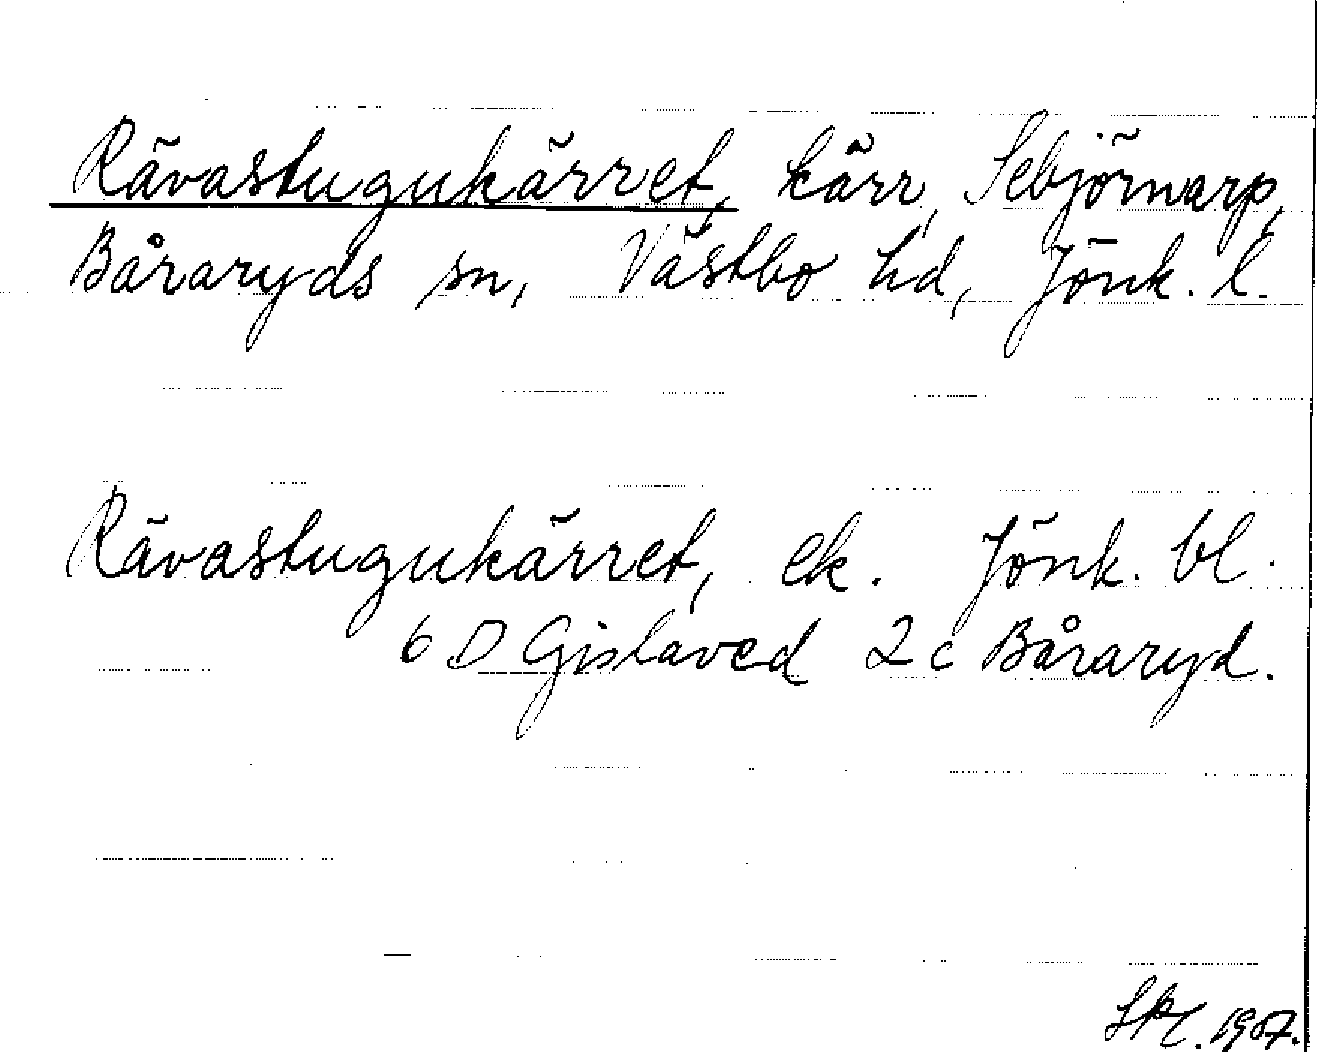 Rävastugukärret, kärr, Sebjörnarp,
Båraryds sn, Västbo hd, Jönk. l.
Rävastugukärret, ek. Jönk. bl.
6 D Gislaved 2c Båraryd.